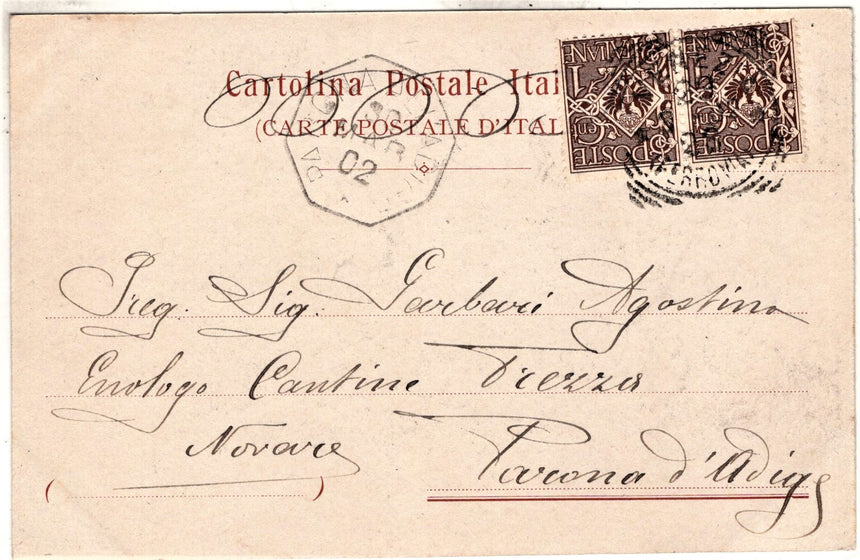 Cartolina Postale Ital
(CARTE POSTALE D'ITAL
POSTE ITALIANE
POSTE ITALIANE
MAR
02
FERROVIA
Preg. Sig. Garbari Agostino
Enologo Cantine Trezza
Novare
Parona d'Adige
( )